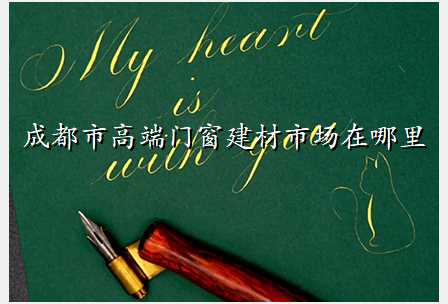 My heart
is
成都市高端门窗建材市场在哪里
with you